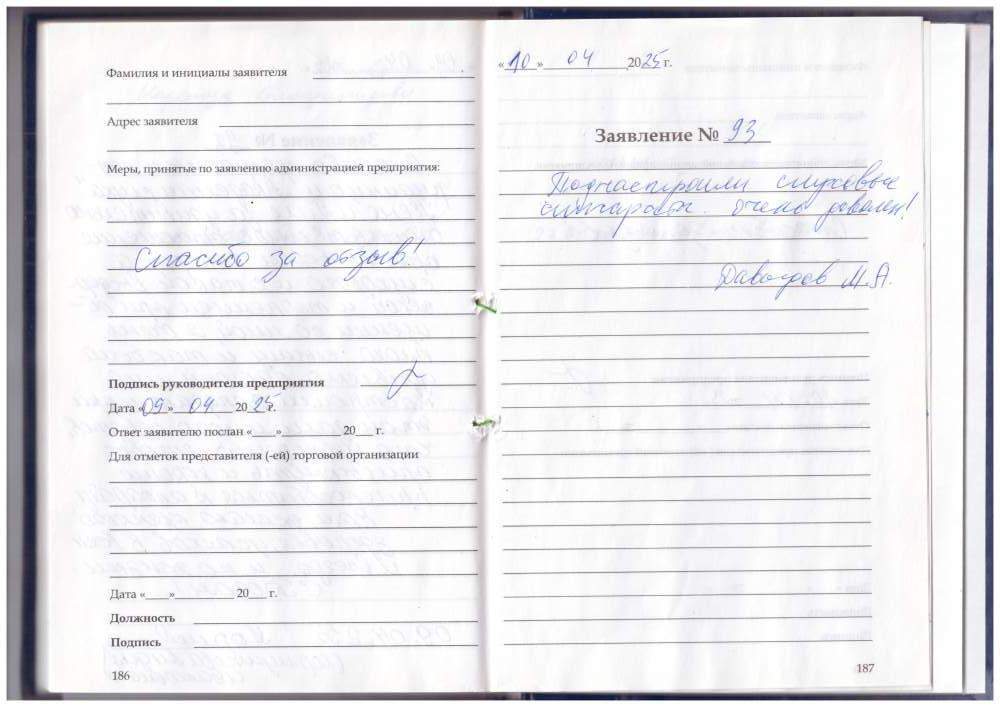 Фамилия и инициалы заявителя
Адрес заявителя
Меры, принятые по заявлению администрацией предприятия:
Спасибо за отзыв!
Подпись руководителя предприятия
Дата «09» 04 2025г.
Ответ заявителю послан «___»__________ 20___ г.
Для отметок представителя (-ей) торговой организации
Дата «____»__________ 20___ г.
Должность
Подпись
186
«10» 04 2025 г.
Заявление № 93
Поднастроили слуховые
аппараты. очень доволен!
М.А.
187